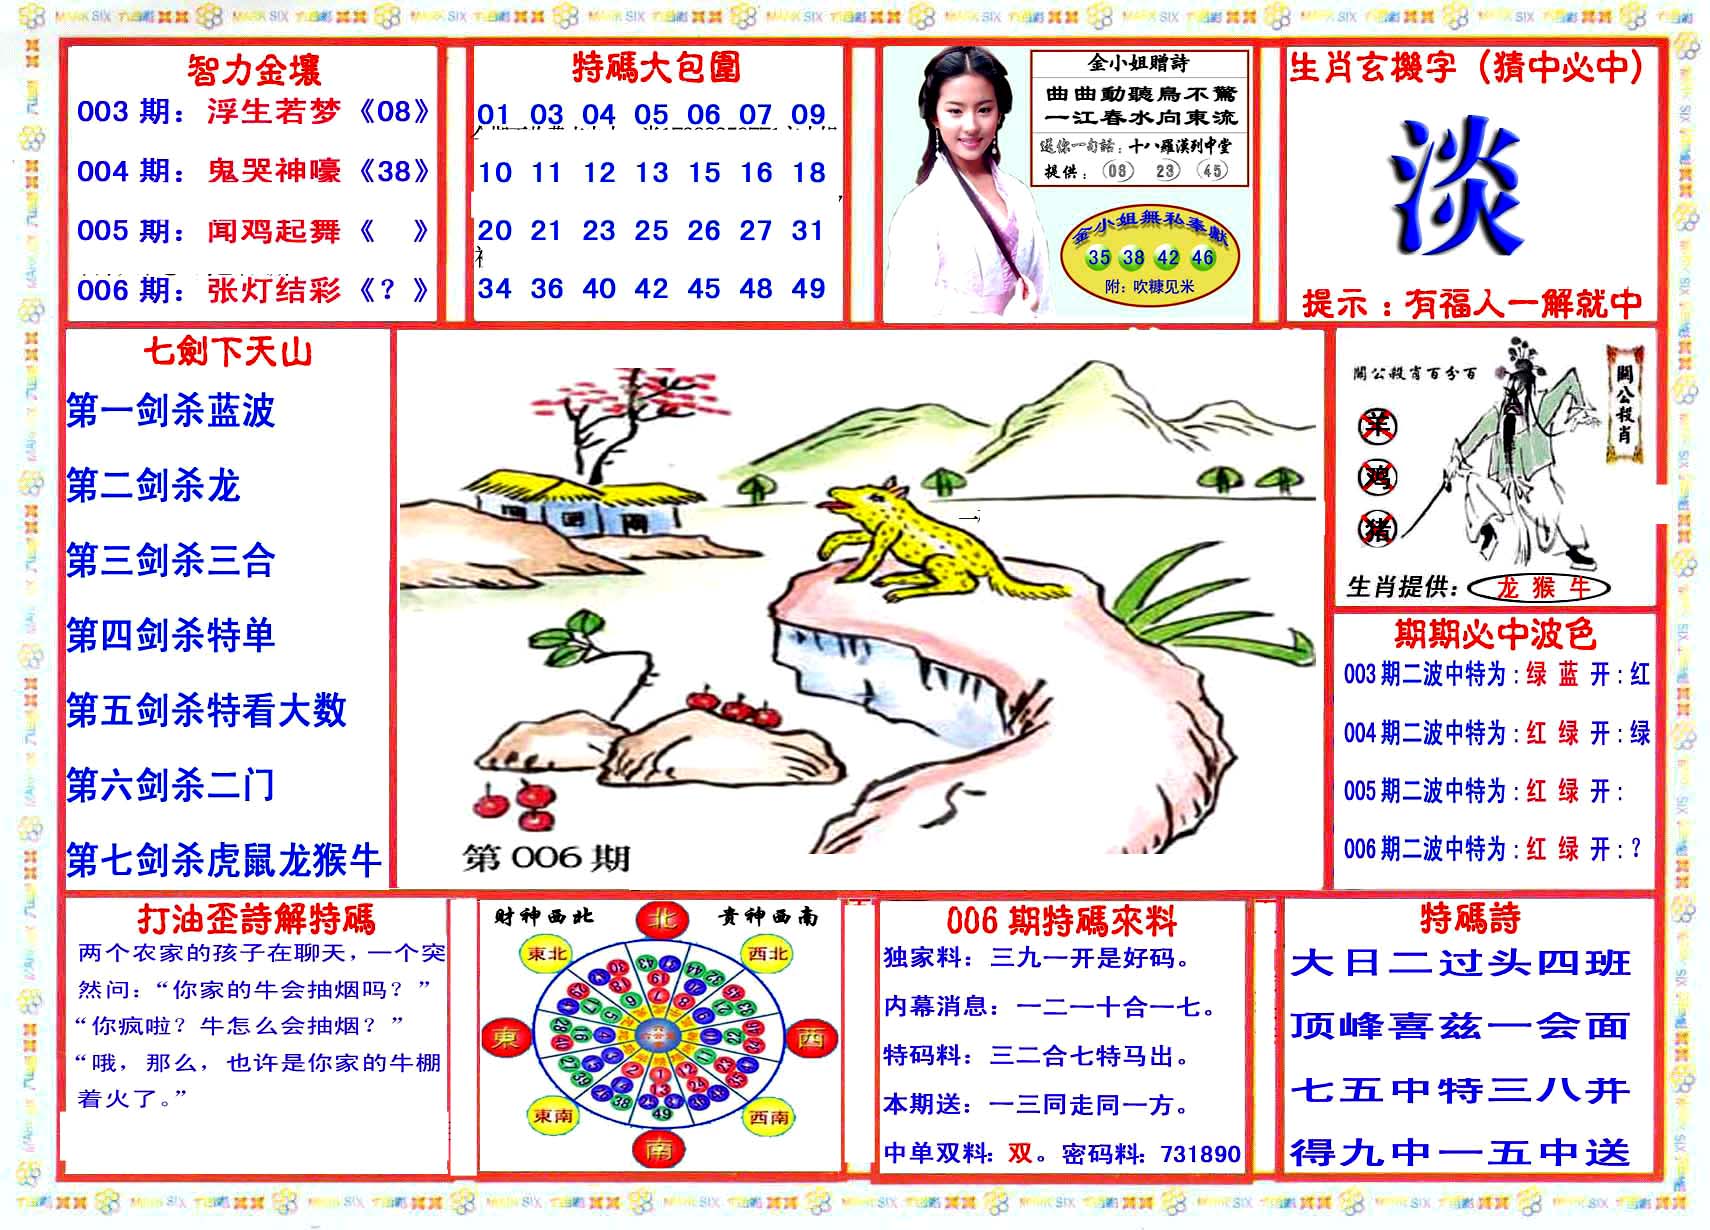 智力金壤
003 期： 浮生若梦《08》
004 期： 鬼哭神嚎《38》
005 期： 闻鸡起舞《 》
006 期： 张灯结彩《？》
特碼大包圍
01 03 04 05 06 07 09
10 11 12 13 15 16 18
20 21 23 25 26 27 31
34 36 40 42 45 48 49
金小姐贈詩
曲曲動聽鳥不驚
一江春水向東流
送你一句話：十八羅漢列中堂
提供：(08) 23) (45)
金小姐無私奉獻
35 38 42 46
附：吹糠见米
生肖玄機字（猜中必中）
淡
提示：有福人一解就中
七劍下天山
第一剑杀蓝波
第二剑杀龙
第三剑杀三合
第四剑杀特单
第五剑杀特看大数
第六剑杀二门
第七剑杀虎鼠龙猴牛
第006期
關公殺肖百分百
關公殺肖
羊
鸡
猪
生肖提供：龙 猴 牛
期期必中波色
003期二波中特为：绿 蓝 开：红
004期二波中特为：红 绿 开：绿
005期二波中特为：红 绿 开：
006期二波中特为：红 绿 开：？
打油歪詩解特碼
两个农家的孩子在聊天，一个突
然问：“你家的牛会抽烟吗？”
“你疯啦？牛怎么会抽烟？”
“哦，那么，也许是你家的牛棚
着火了。”
財神西北
貴神西南
北
東北
西北
東
西
東南
西南
南
006期特碼來料
独家料：三九一开是好码。
内幕消息：一二一十合一七。
特码料：三二合七特马出。
本期送：一三同走同一方。
中单双料：双。密码料：731890
特碼詩
大日二过头四班
顶峰喜兹一会面
七五中特三八并
得九中一五中送